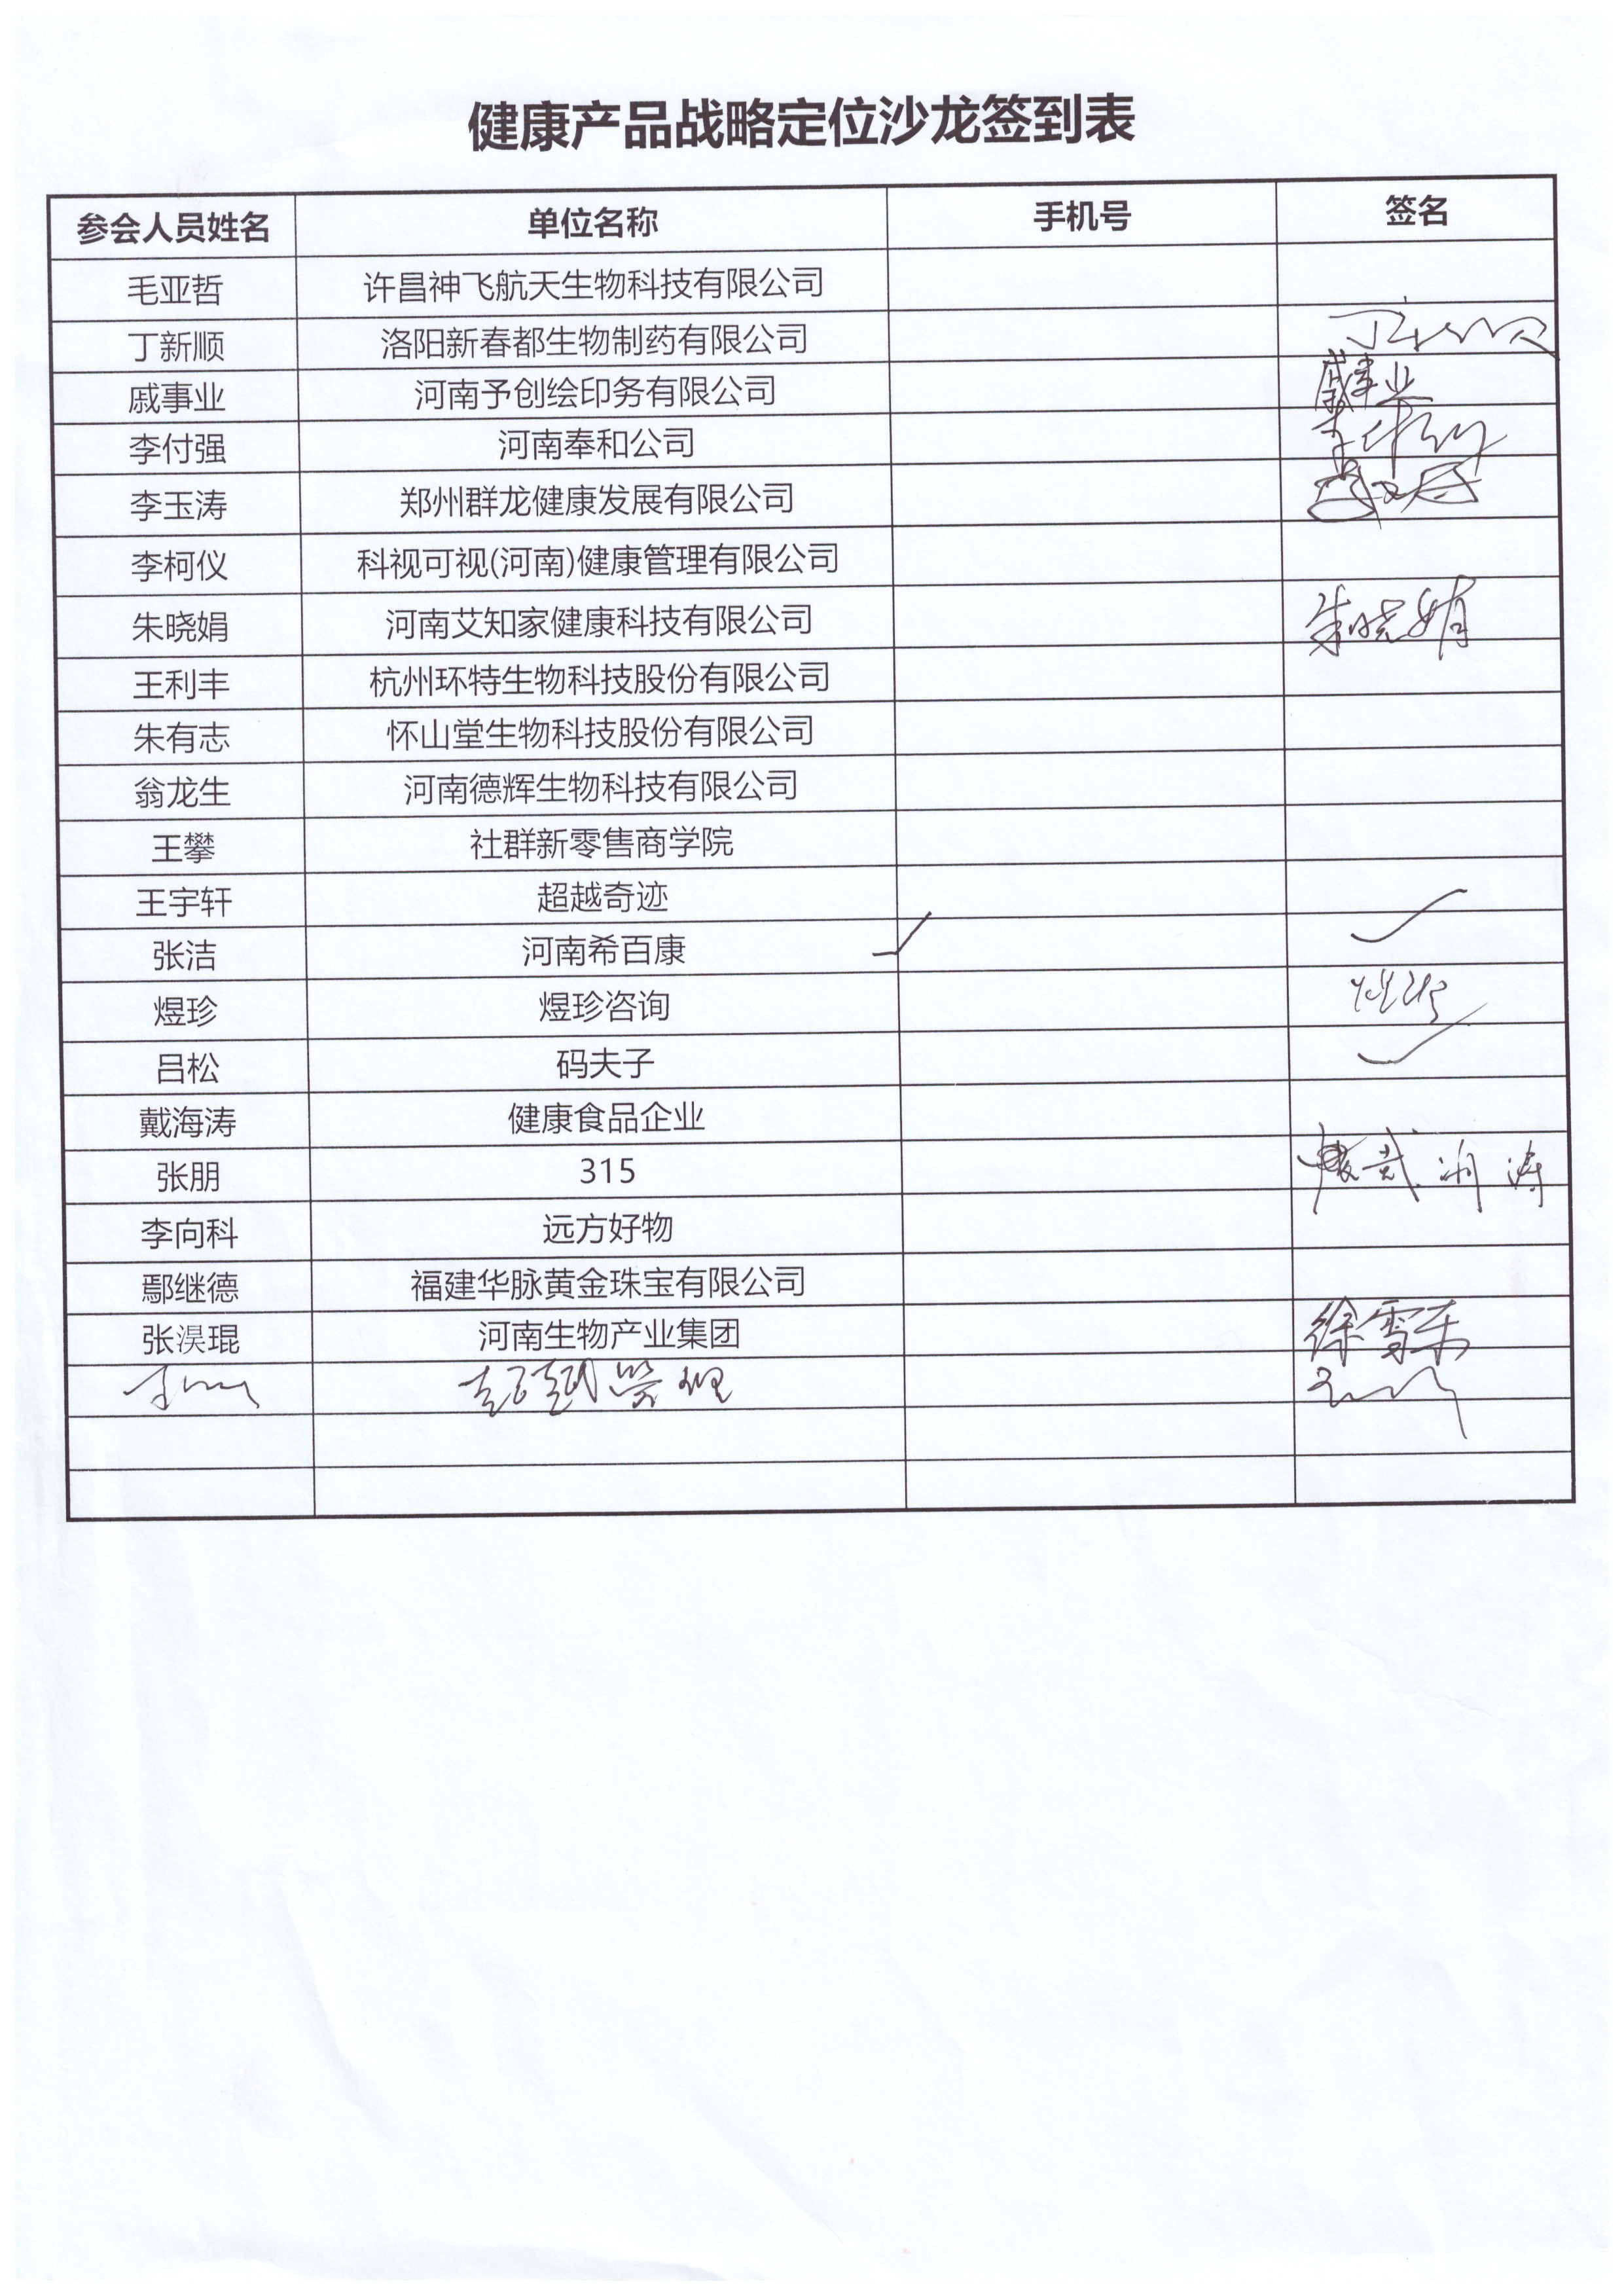 健康产品战略定位沙龙签到表
参会人员姓名 单位名称 手机号 签名
毛亚哲 许昌神飞航天生物科技有限公司
丁新顺 洛阳新春都生物制药有限公司 丁新顺
戚事业 河南予创绘印务有限公司 戚事业
李付强 河南奉和公司 李付强
李玉涛 郑州群龙健康发展有限公司
李柯仪 科视可视(河南)健康管理有限公司
朱晓娟 河南艾知家健康科技有限公司 朱晓娟
王利丰 杭州环特生物科技股份有限公司
朱有志 怀山堂生物科技股份有限公司
翁龙生 河南德辉生物科技有限公司
王攀 社群新零售商学院
王宇轩 超越奇迹
张洁 河南希百康
煜珍 煜珍咨询 煜珍
吕松 码夫子
戴海涛 健康食品企业
张朋 315
李向科 远方好物
鄢继德 福建华脉黄金珠宝有限公司
张淏琨 河南生物产业集团 徐雪东